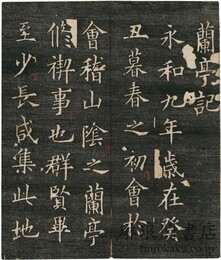 蘭亭記
永和九年歲在癸
丑暮春之初會於
會稽山陰之蘭亭
脩禊事也群賢畢
至少長咸集此地